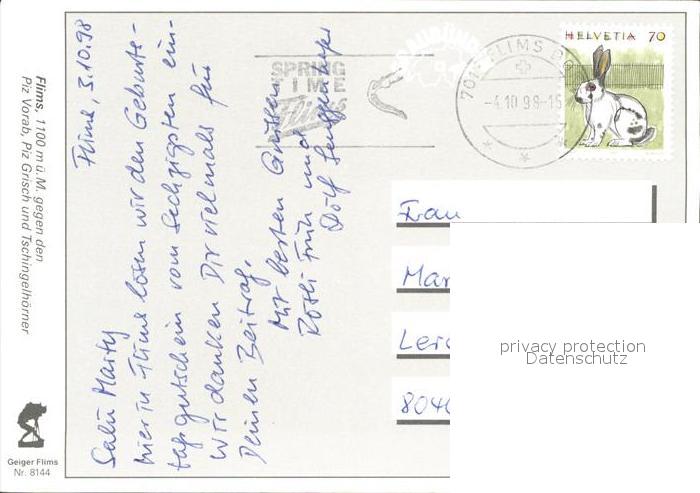 Flims, 3.10.98
Salü Marty
hier in Flims lösen wir den Geburts-
tagsgutschein vom Sechzigsten ein.
Wir danken Dir vielmals für
Deinen Beitrag.
Mit besten Grüssen
Rösli Früh und
Dölf
Flims, 1100 m ü. M. gegen den
Piz Vorab, Piz Grisch und Tschingelhörner
Geiger Flims
Nr. 8144
SPRING
TIME
Flims
GRAUBÜNDEN
7017 FLIMS D
-4.10 98-15
HELVETIA 70
Frau
Mar
Ler
804
privacy protection
Datenschutz